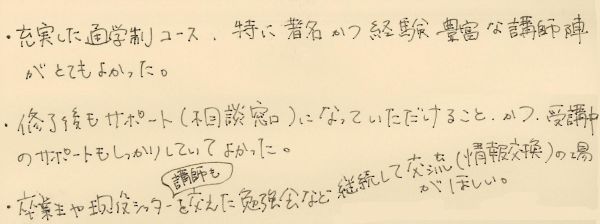 ・充実した通学制コース、特に著名かつ経験豊富な講師陣
がとてもよかった。
・修了後もサポート(相談窓口)になっていただけること、かつ、受講中
のサポートもしっかりしていてよかった。
・卒業生や現役シッターを交えた勉強会など継続して交流(情報交換)の場
講師も
がほしい。